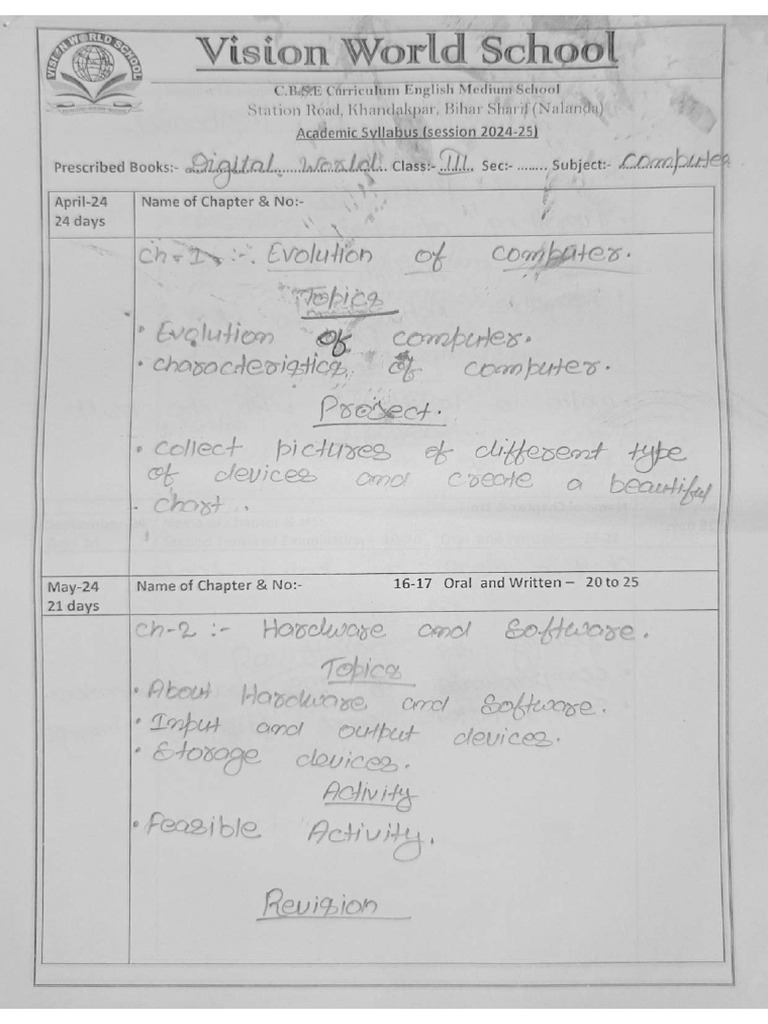 VISION WORLD SCHOOL
Vision World School
C.B.S.E Curriculum English Medium School
Station Road, Khandakpar, Bihar Sharif (Nalanda)
Academic Syllabus (session 2024-25)
Prescribed Books:- Digital World Class:- III Sec:- ........ Subject:- Computer
April-24 Name of Chapter & No:-
24 days
Ch-1 :- Evolution of computer.
Topics
• Evolution of computer.
• characteristics of computer.
Project.
• collect pictures of different type
of devices and create a beautiful
chart.
May-24 Name of Chapter & No:- 16-17 Oral and Written – 20 to 25
21 days
Ch-2 :- Hardware and Software.
Topics
• About Hardware and Software.
• Input and output devices.
• Storage devices.
Activity
• Feasible Activity.
Revision